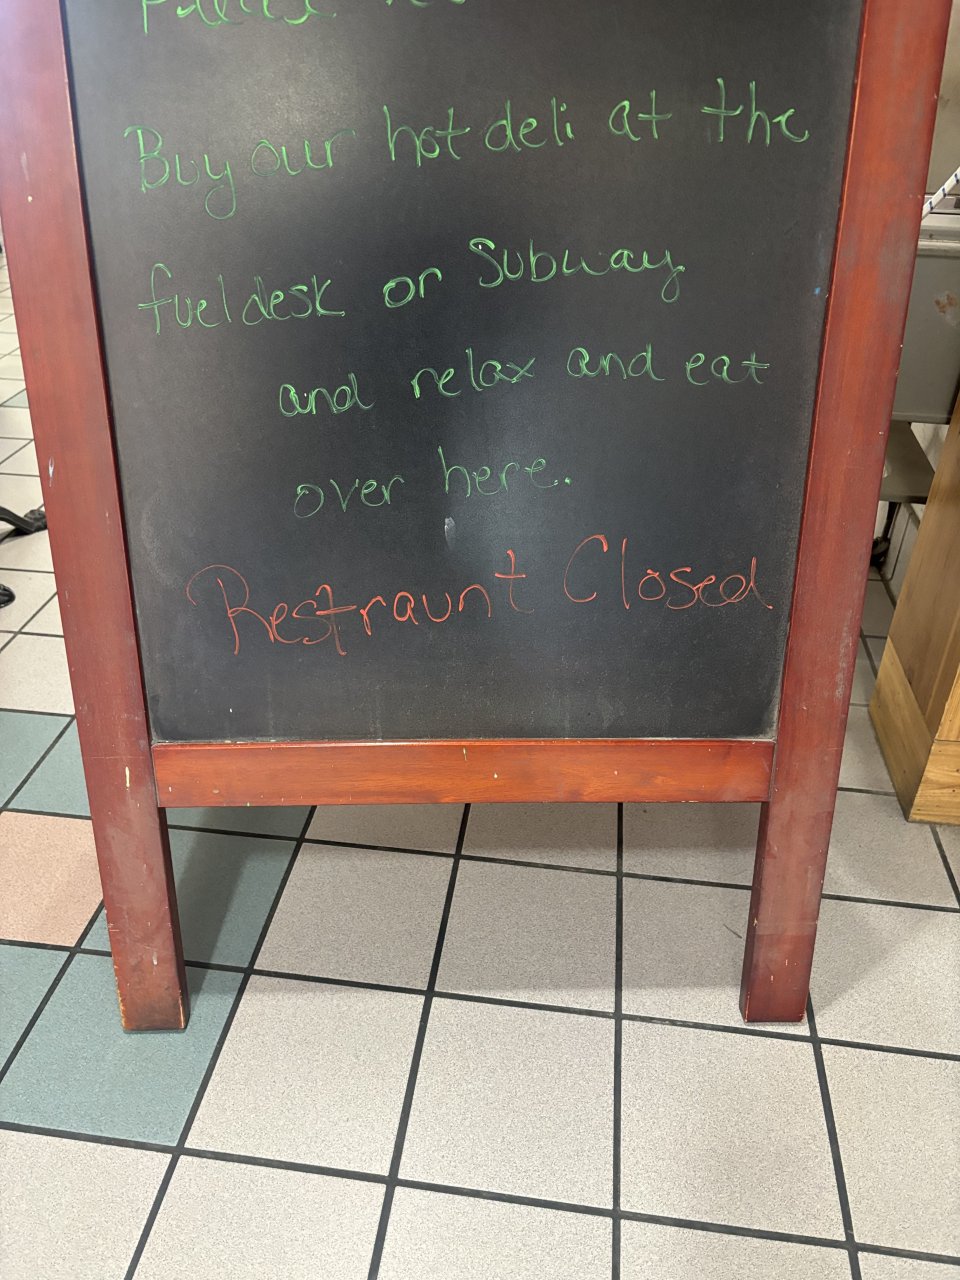 Buy our hot deli at the
fuel desk or Subway
and relax and eat
over here.
Restraunt Closed